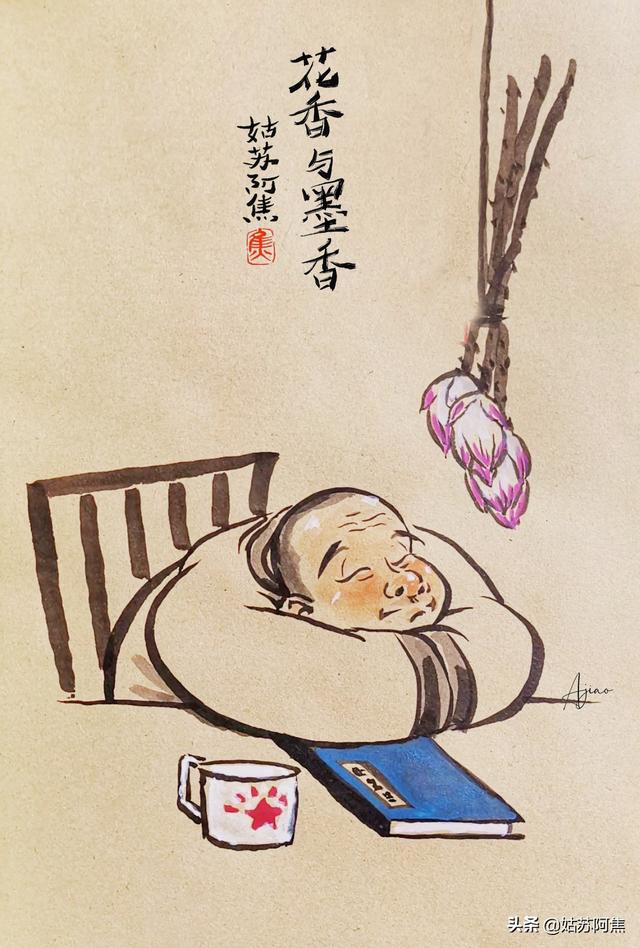 花香与墨香
姑苏阿焦
焦
Ajiao
头条 @姑苏阿焦